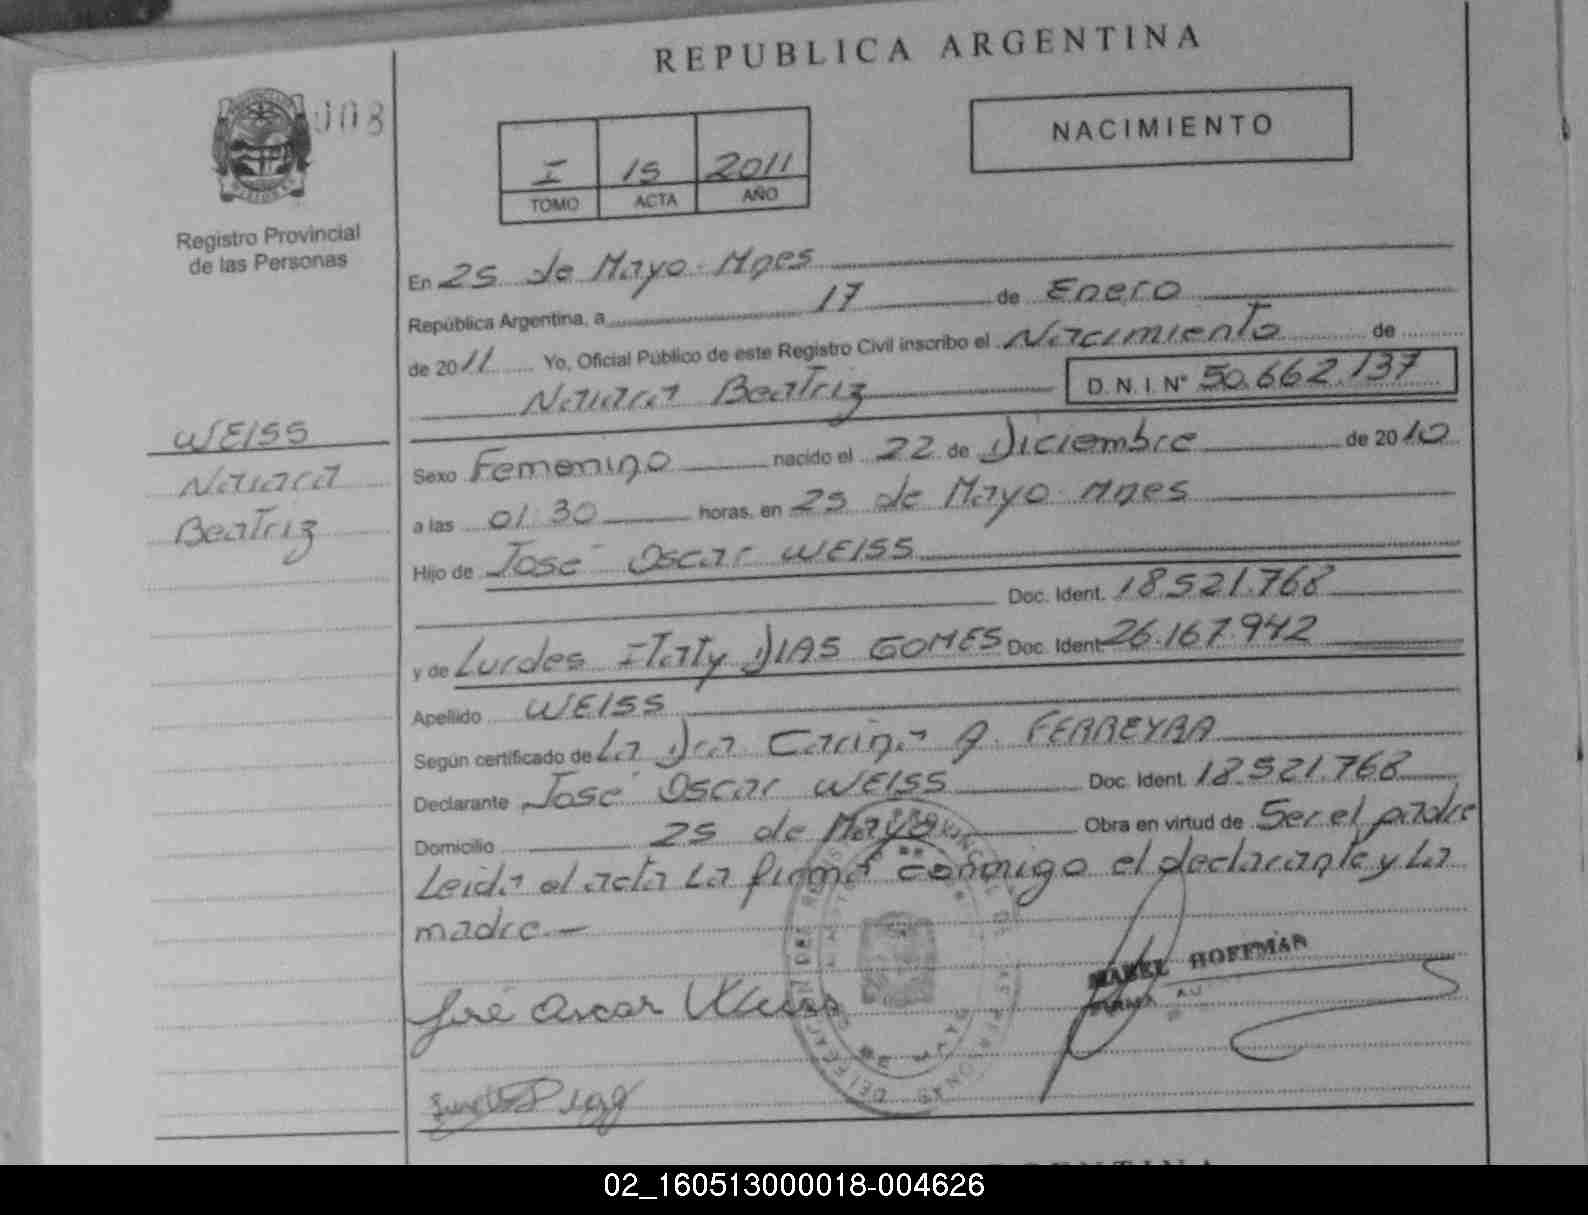 REPUBLICA ARGENTINA
008
NACIMIENTO
I 15 2011
TOMO ACTA AÑO
Registro Provincial
de las Personas
En 25 de Mayo - Mnes
República Argentina, a 17 de Enero
de 2011 Yo, Oficial Público de este Registro Civil inscribo el Nacimiento de
Naiara Beatriz D. N. I. N° 50.662.137
WEISS
Naiara
Beatriz
Sexo Femenino nacido el 22 de Diciembre de 2010
a las 01:30 horas, en 25 de Mayo - Mnes
Hijo de José Oscar WEISS
Doc. Ident. 18.521.768
y de Lurdes Itaty DIAS GOMES Doc. Ident. 26.167.942
Apellido WEISS
Según certificado de La Dra Carina A. FERREYRA
Declarante José Oscar WEISS Doc. Ident. 18.521.768
Domicilio 25 de Mayo Obra en virtud de Ser el padre
Leida el acta La firma conmigo el declarante y La
madre.-
José Oscar Weiss
MABEL HOFFMAN
02_160513000018-004626